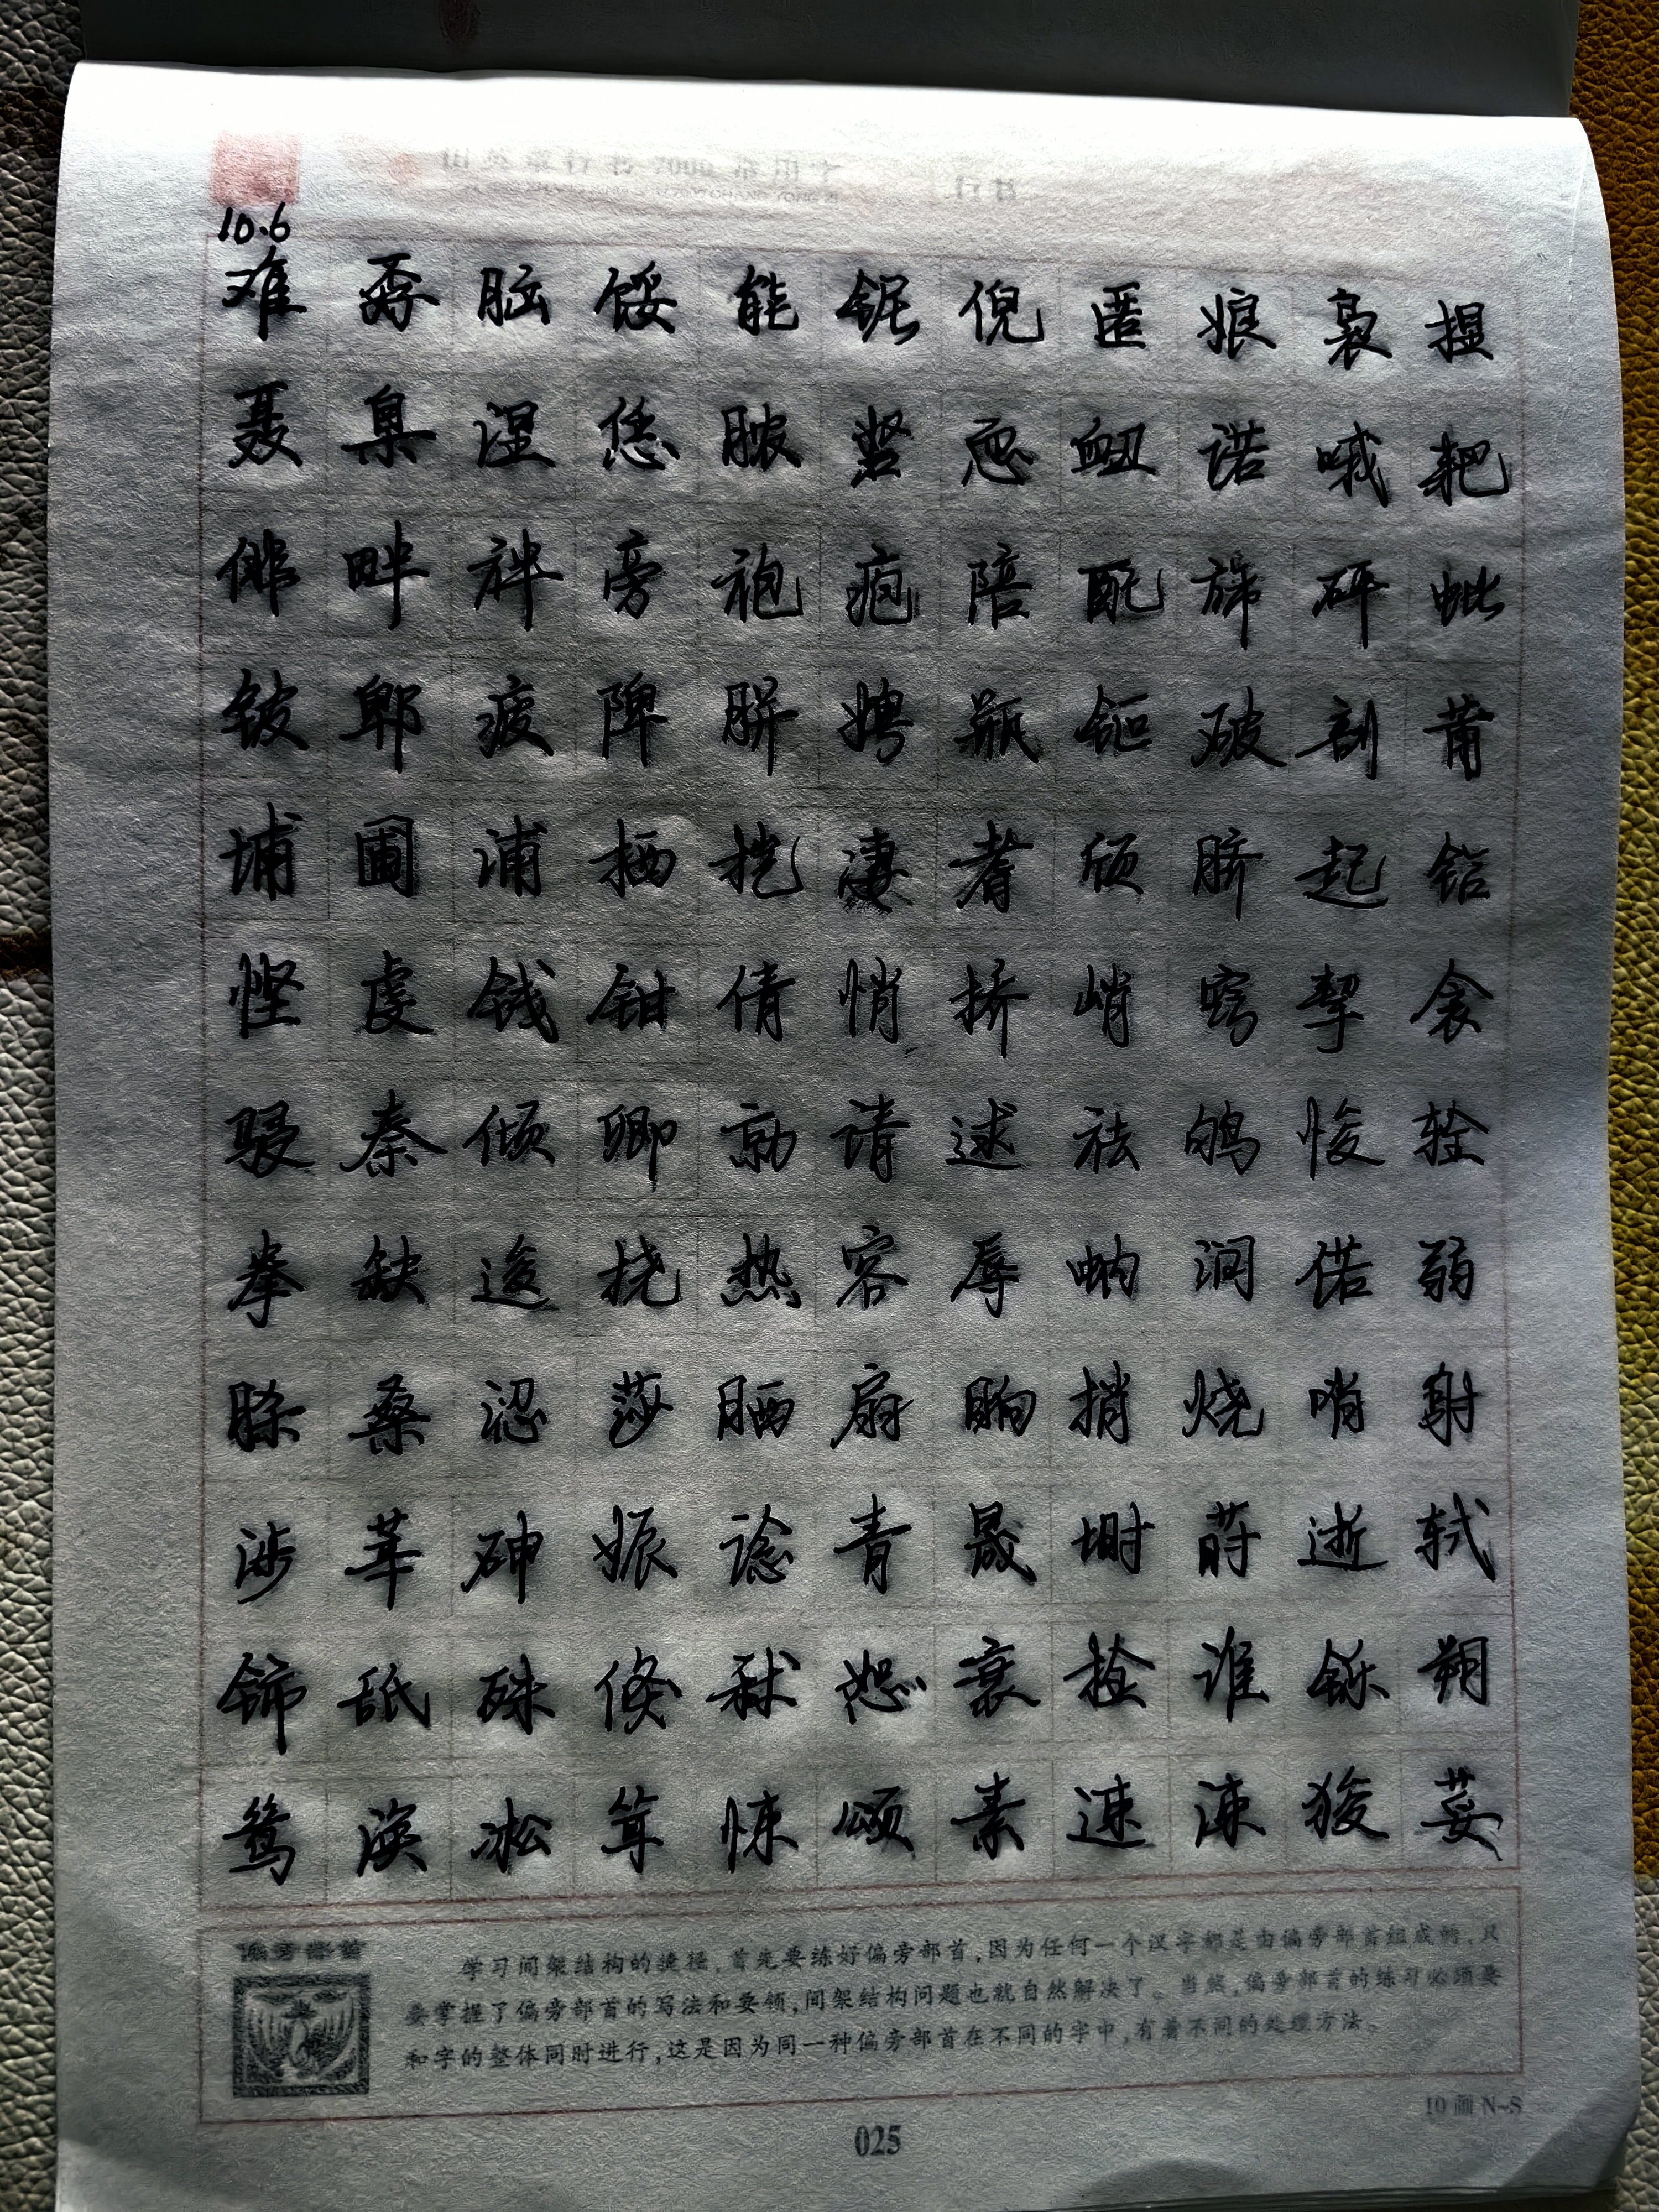 田英章行书7000常用字 行书
10.6
难 孬 脑 馁 能 铌 倪 匿 娘 袅 捏
聂 臬 涅 恁 脓 恧 衄 诺 哦 耙
俳 畔 袢 旁 袍 疱 陪 配 旆 砰 蚍
铍 郫 疲 陴 胼 娉 瓶 钷 破 剖 莆
埔 圃 浦 栖 桤 凄 耆 颀 脐 起 铅
悭 虔 钱 钳 倩 悄 挢 峭 窍 挈 衾
骎 秦 倾 卿 勍 请 逑 祛 鸲 悛 拴
拳 缺 逡 挠 热 容 辱 蚋 润 偌 弱
脎 桑 涩 莎 晒 扇 晌 捎 烧 哨 射
涉 莘 砷 娠 谂 胥 晟 埘 莳 逝 轼
铈 舐 殊 倏 秫 恕 衰 捡 谁 铄 朔
鸶 涘 凇 耸 悚 颂 素 速 涑 狻 荽
学习间架结构的捷径,首先要练好偏旁部首,因为任何一个汉字都是由偏旁部首组成的,只
要掌握了偏旁部首的写法和要领,间架结构问题也就自然解决了。当然,偏旁部首的练习必须要
和字的整体同时进行,这是因为同一种偏旁部首在不同的字中,有着不同的处理方法。
10画N~S
025